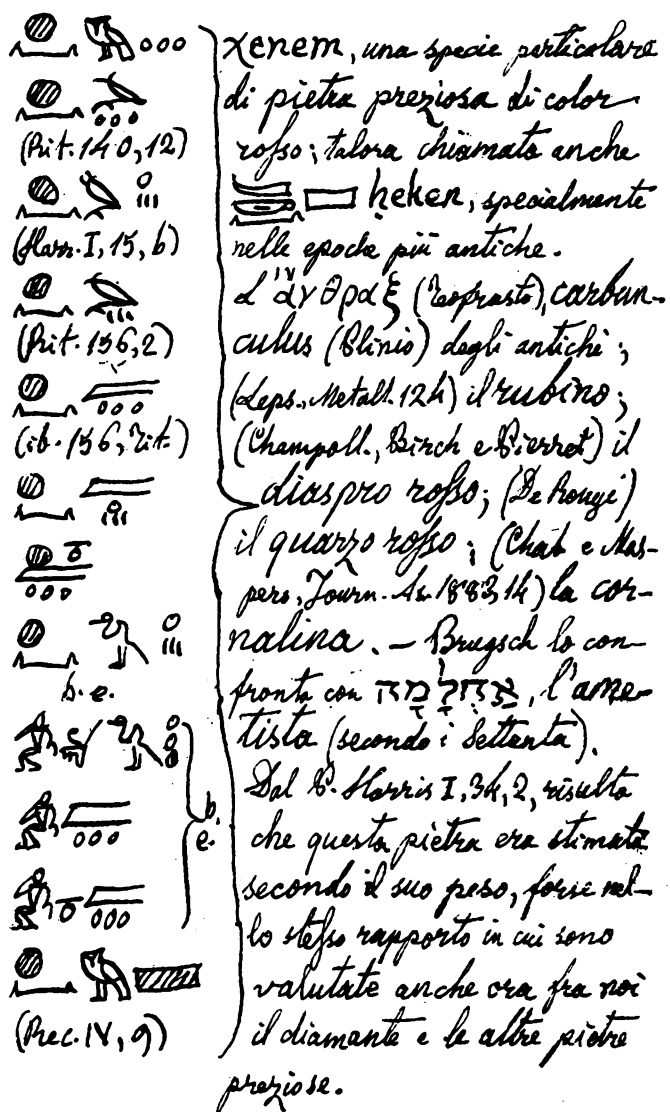 χenem, una specie particolare
di pietra preziosa di color
(Rit. 140, 12)
rosso; talora chiamata anche
ḥeken, specialmente
(Harr. I, 15, b)
nelle epoche più antiche.
L' ἄνθραξ (Teofrasto), carbun-
(Rit. 156, 2)
culus (Plinio) degli antichi;
(Leps., Metall. 124) il rubino;
(ib. 156, Tit.)
(Champoll., Birch e Pierret) il
diaspro rosso; (De Rougé)
il quarzo rosso; (Chab. e Mas-
pero, Journ. As. 1883, 14) la cor-
nalina. — Brugsch lo con-
b. e.
fronta con אַחְלָמָה, l'ame-
tista (secondo i Settanta).
Dal P. Harris I, 34, 2, risulta
b.
che questa pietra era stimata
e.
secondo il suo peso, forse nel-
lo stesso rapporto in cui sono
valutate anche ora fra noi
(Rec. IV, 9)
il diamante e le altre pietre
preziose.